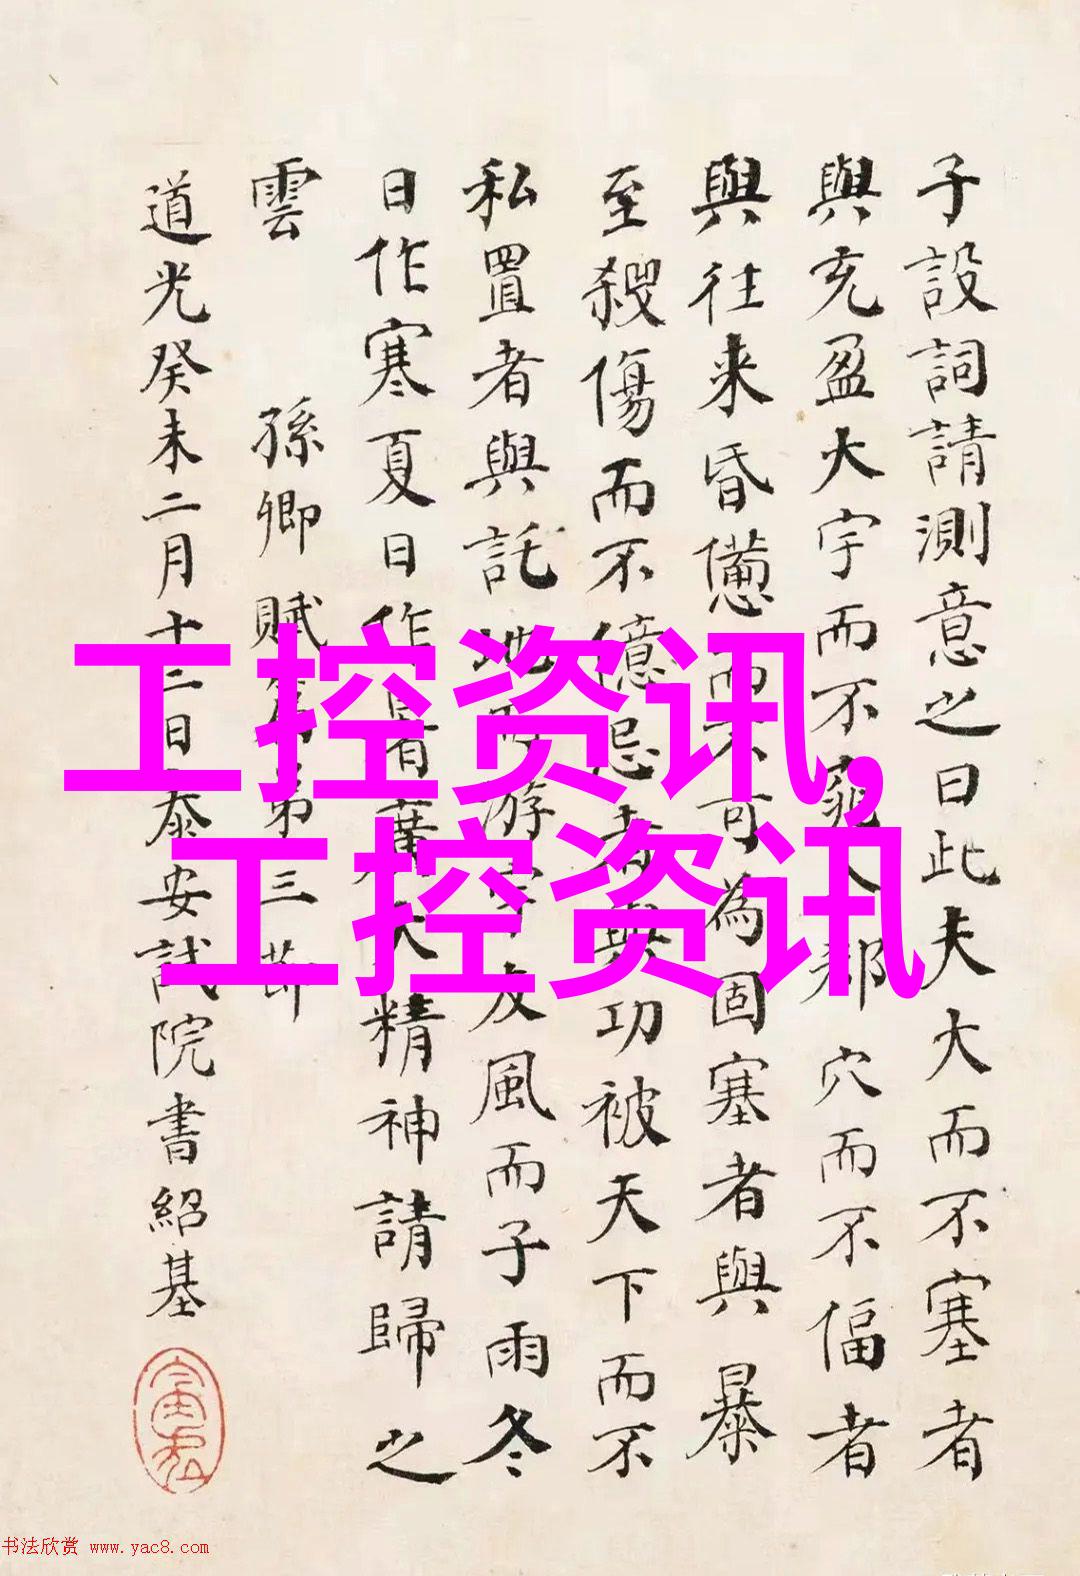 子設詞請測意之曰此夫大而不塞者
與充盈大宇而不窕入郤穴而不偪者
與往来昏憊而不可為固塞者與暴
至殺傷而不億忌者與功被天下而不
私置者與託地而游宇友風而子雨冬
日作寒夏日作暑廣大精神請歸之
雲 孫卿賦篇第三節
道光癸未二月十二日泰安試院書紹基
工控资讯,
工控资讯
书法欣赏 www.yac8.com